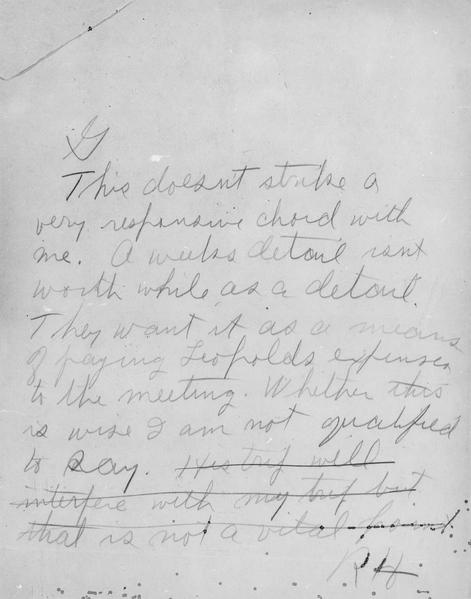 G
This doesnt strike a
very responsive chord with
me. A weeks detail isnt
worth while as a detail.
They want it as a means
of paying Leopolds expenses
to the meeting. Whether this
is wise I am not qualified
to say. His trip will
interfere with my trip but
that is not a vital point
RH